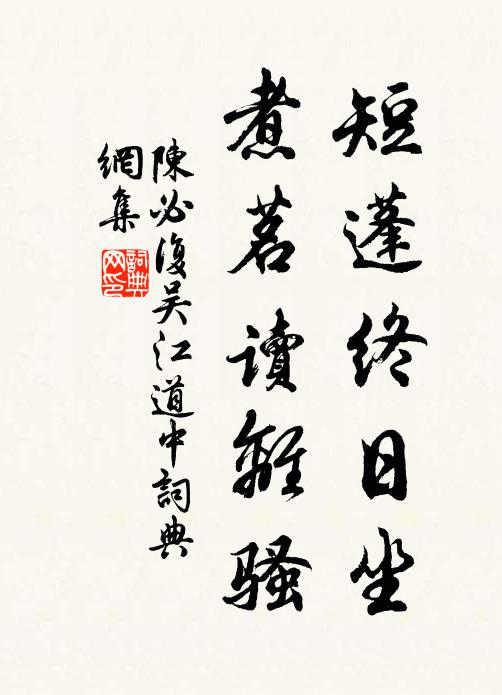 短蓬終日坐
煮茗讀離騷
陳必復吴江道中詞典
網集
詞典网印